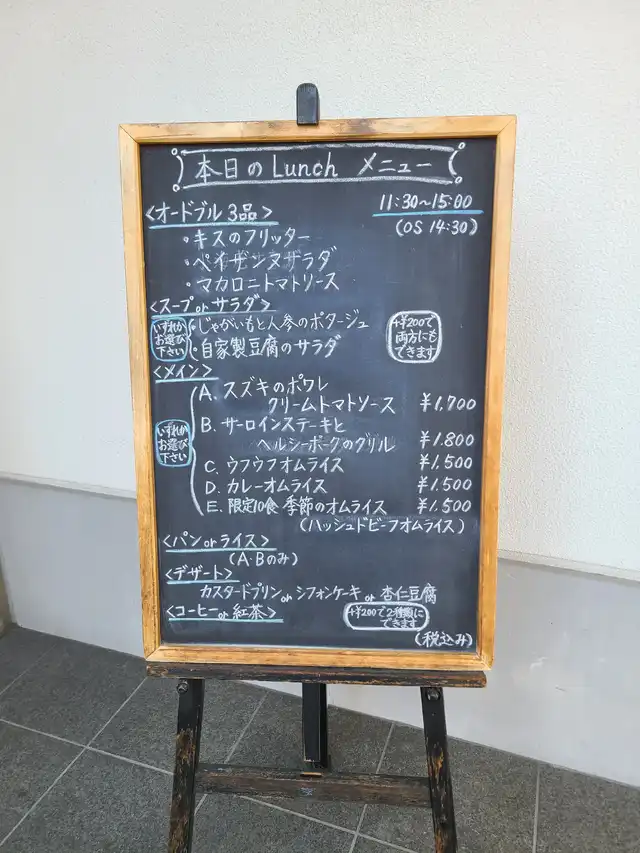 本日のLunch メニュー
11:30~15:00
(OS 14:30)
<オードブル 3品>
・キスのフリッター
・ペイザンヌサラダ
・マカロニトマトソース
<スープ or サラダ>
いずれか
お選び
下さい
・じゃがいもと人参のポタージュ
・自家製豆腐のサラダ
+¥200で
両方にも
できます
<メイン>
いずれか
お選び
下さい
A. スズキのポワレ
クリームトマトソース ¥1,700
B. サーロインステーキと
ヘルシーポークのグリル ¥1,800
C. ウフウフオムライス ¥1,500
D. カレーオムライス ¥1,500
E. 限定10食 季節のオムライス ¥1,500
(ハッシュドビーフオムライス)
<パン or ライス>
(A・Bのみ)
<デザート>
カスタードプリン or シフォンケーキ or 杏仁豆腐
<コーヒー or 紅茶>
+¥200で2種類に
できます
(税込み)